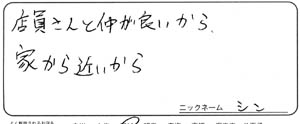 店員さんと仲が良いから、
家から近いから
ニックネーム シン